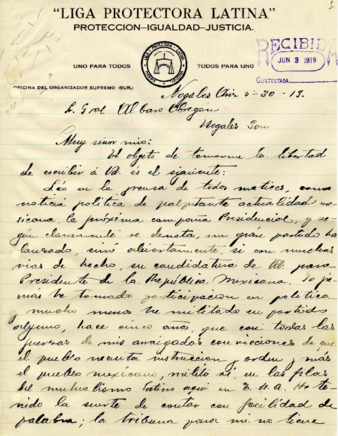 "LIGA PROTECTORA LATINA"
PROTECCION—IGUALDAD—JUSTICIA.
UNO PARA TODOS
TODOS PARA UNO
RECIBIDA
JUN 3 1919
CONTESTADA
OFICINA DEL ORGANIZADOR SUPREMO (SUR.)
Nogales Ariz 5-30-19.
C. Gral Albaro Obregon
Nogales Son
Muy señor mio:
El objeto de tomarme la libertad
de escribir á Vd. es el siguiente:
Leo en la prensa de todos matices, como
noticia politica de palpitante actualidad
la próxima campaña Presidencial, y se
claramente se denota, un gran partido ha
lanzado, sinó abiertamente, si con muchas
vias de hecho, su candidatura de Ud. para
Presidente de la Republica Mexicana. Yo ja
más he tomado participacion en politica
y mucho menos he militado en partido
alguno, hace cinco años, que con todas las
fuerzas de mis arraigadas convicciones de que
el pueblo necesita instruccion y orden y más
el pueblo mexicano, milito así en las filas
del mutualismo latino aqui en E.U.A. He te
nido la suerte de contar con facilidad de
palabra; la tribuna para mi no tiene